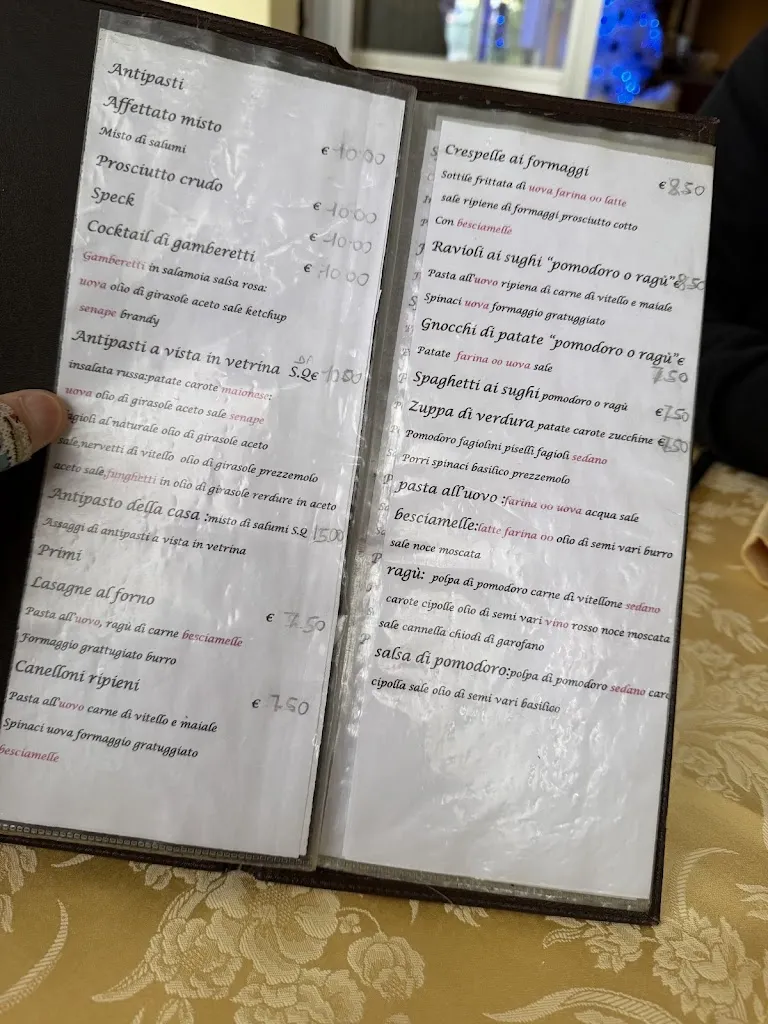 Antipasti
Affettato misto
Misto di salumi € 10.00
Prosciutto crudo € 10.00
Speck € 10.00
Cocktail di gamberetti € 10.00
Gamberetti in salamoia salsa rosa:
uova olio di girasole aceto sale ketchup
senape brandy
Antipasti a vista in vetrina S.Q€
insalata russa:patate carote maionese:
uova olio di girasole aceto sale senape
agioli al naturale olio di girasole aceto
sale,nervetti di vitello olio di girasole prezzemolo
aceto sale,funghetti in olio di girasole verdure in aceto
Antipasto della casa :misto di salumi S.Q 15.00
Assaggi di antipasti a vista in vetrina
Primi
Lasagne al forno € 7.50
Pasta all'uovo, ragù di carne besciamelle
Formaggio grattugiato burro
Canelloni ripieni € 7.50
Pasta all'uovo carne di vitello e maiale
Spinaci uova formaggio gratuggiato
besciamelle
Crespelle ai formaggi € 8.50
Sottile frittata di uova farina oo latte
sale ripiene di formaggi prosciutto cotto
Con besciamelle
Ravioli ai sughi "pomodoro o ragù"€ 8.50
Pasta all'uovo ripiena di carne di vitello e maiale
Spinaci uova formaggio gratuggiato
Gnocchi di patate "pomodoro o ragù"€
Patate farina oo uova sale 7.50
Spaghetti ai sughi pomodoro o ragù €7.50
Zuppa di verdura patate carote zucchine €7.50
Pomodoro fagiolini piselli fagioli sedano
Porri spinaci basilico prezzemolo
pasta all'uovo :farina oo uova acqua sale
besciamelle:latte farina oo olio di semi vari burro
sale noce moscata
ragù: polpa di pomodoro carne di vitellone sedano
carote cipolle olio di semi vari vino rosso noce moscata
sale cannella chiodi di garofano
salsa di pomodoro:polpa di pomodoro sedano caro
cipolla sale olio di semi vari basilico